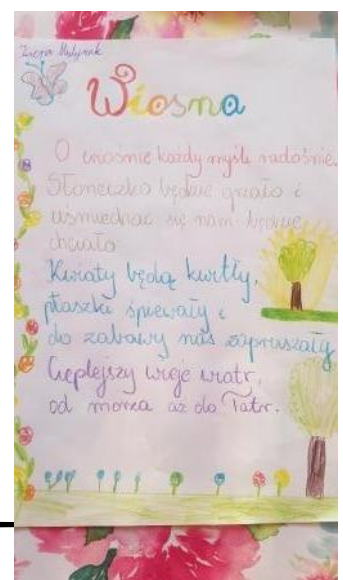 Wiosna
O wiośnie każdy myśli radośnie.
Słoneczko będzie grzało i
uśmiechać się nam będzie
chciało
Kwiaty będą kwitły,
ptaszki śpiewały i
do zabawy nas zapraszały
Cieplejszy wieje wiatr,
od morza aż do Tatr.